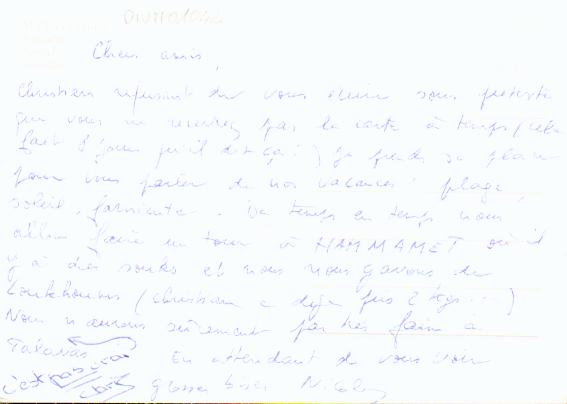 Chers amis,
Christian refusant de vous écrire sous prétexte
que vous ne recevrez pas la carte à temps (cela
fait 8 jours qu'il dit ça!) je prends sa place
pour vous parler de nos vacances: plage,
soleil, farniente. De temps en temps nous
allons faire un tour à HAMMAMET où il
y a des souks et nous nous gavons de
Loukhoums (Christian a déjà pris 2 kgs...)
Nous n'aurons sûrement pas très faim à
En attendant de vous voir
c'est pas vrai
Chris
grosses bises Nicolas